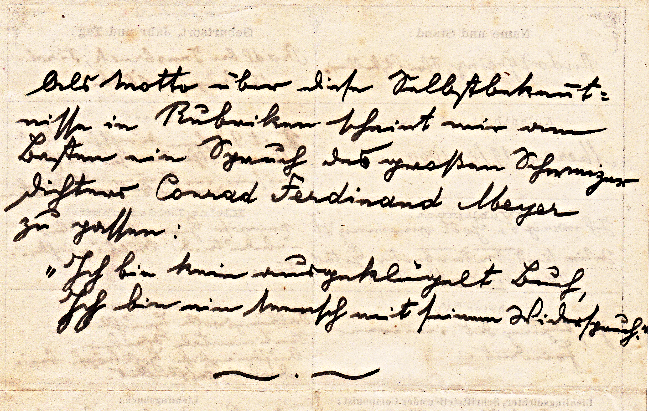 Als Motto über diese Selbstbekennt=
nisse in Rubriken scheint mir am
Besten ein Spruch des großen Schweizer
Dichters Conrad Ferdinand Meyer
zu passen:
„Ich bin kein ausgeklügelt Buch,
Ich bin ein Mensch mit seinem Widerspruch."